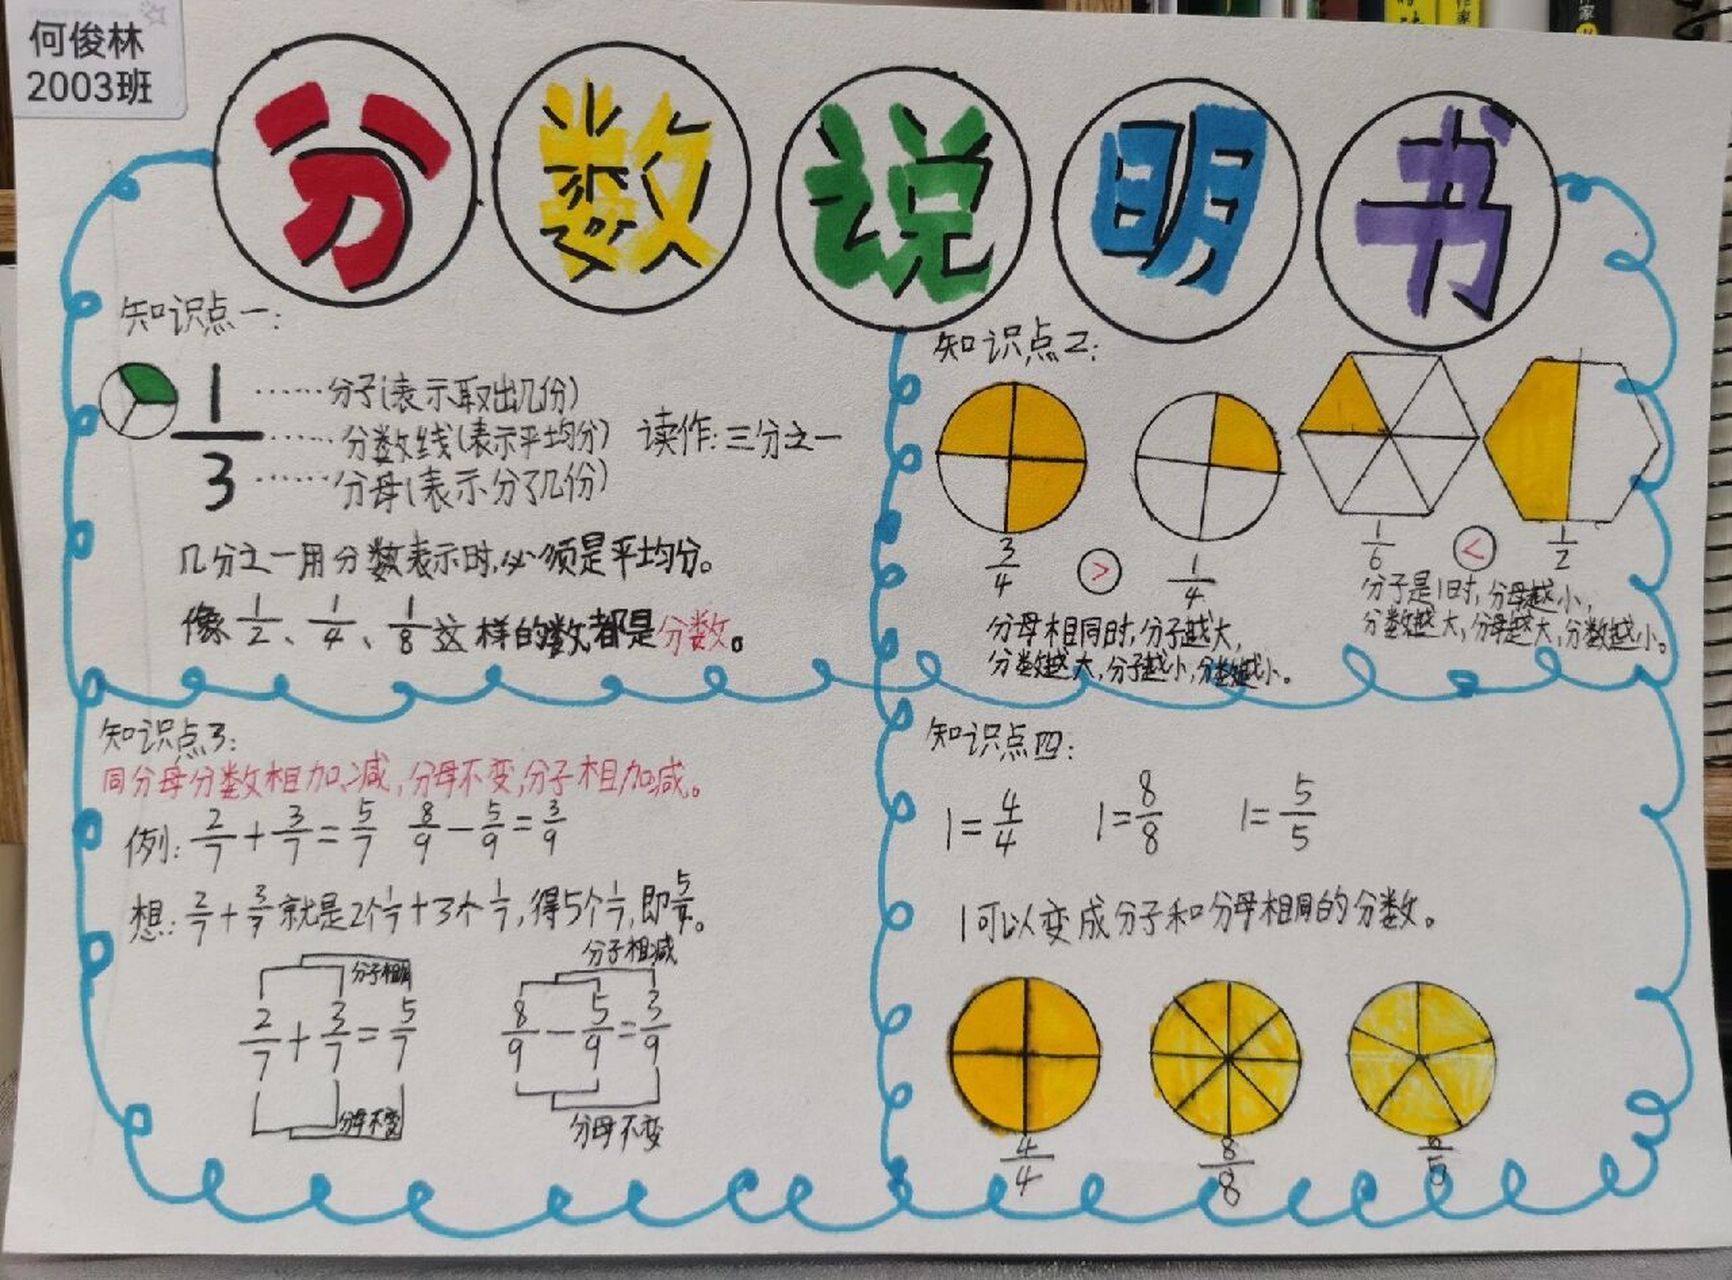 何俊林
2003班
分数说明书
知识点一:
1/3
……分子(表示取出几份)
……分数线(表示平均分) 读作:三分之一
……分母(表示分了几份)
几分之一用分数表示时,必须是平均分。
像1/2、1/4、1/8这样的数,都是分数。
知识点2:
3/4 > 1/4
分母相同时,分子越大,
分数越大,分子越小,分数越小。
1/6 < 1/2
分子是1时,分母越小,
分数越大,分母越大,分数越小。
知识点3:
同分母分数相加、减,分母不变,分子相加减。
例: 2/7+3/7=5/7 8/9-5/9=3/9
想: 2/7+3/7就是2个1/7+3个1/7,得5个1/7,即5/7。
分子相加
2/7+3/7=5/7
分母不变
分子相减
8/9-5/9=3/9
分母不变
知识点四:
1=4/4 1=8/8 1=5/5
1可以变成分子和分母相同的分数。
4/4 8/8 5/5